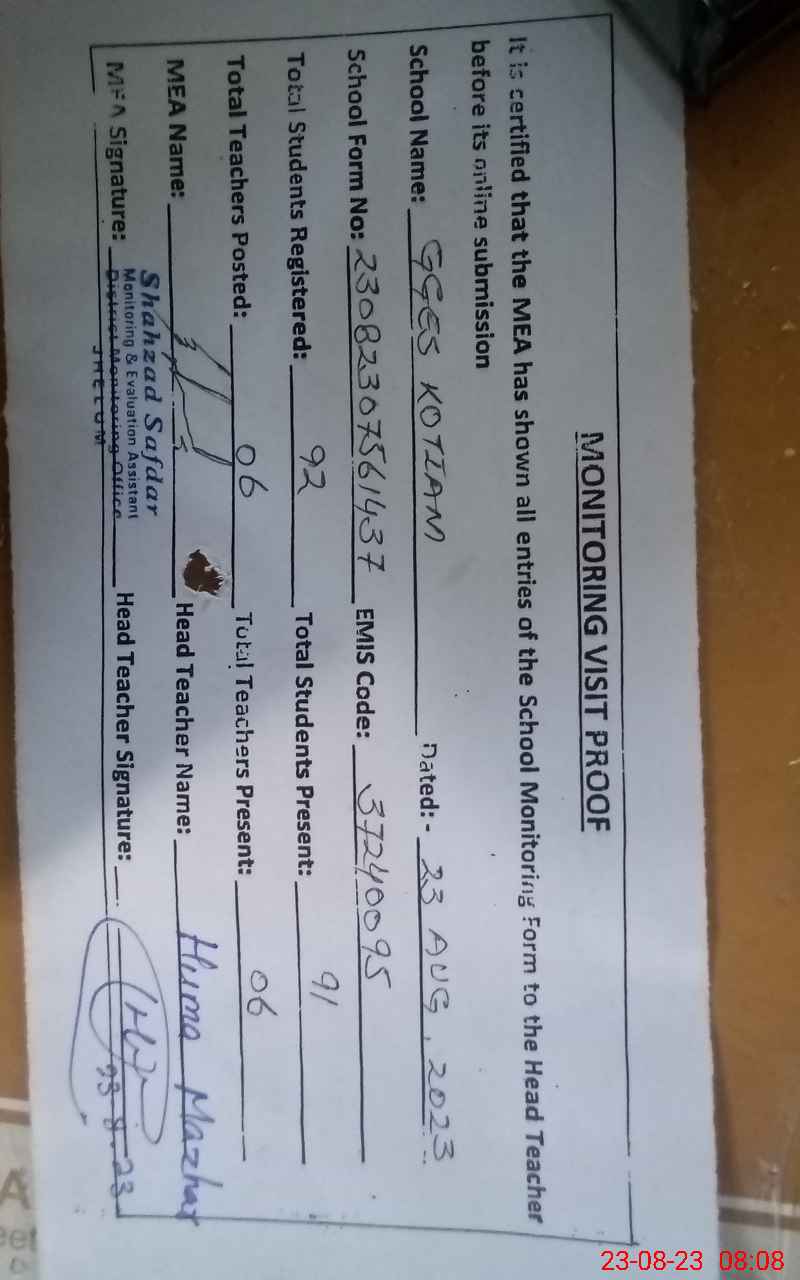 MONITORING VISIT PROOF
It is certified that the MEA has shown all entries of the School Monitoring Form to the Head Teacher
before its online submission
School Name: GGES KOTIAM Dated:- 23 AUG, 2023
School Form No: 23082307561437 EMIS Code: 37240095
Total Students Registered: 92 Total Students Present: 91
Total Teachers Posted: 06 Total Teachers Present: 06
MEA Name: Head Teacher Name: Huma Mazhar
Shahzad Safdar
Monitoring & Evaluation Assistant
MEA Signature: District Monitoring Office Head Teacher Signature: 23-8-23
JHELUM
23-08-23 08:08